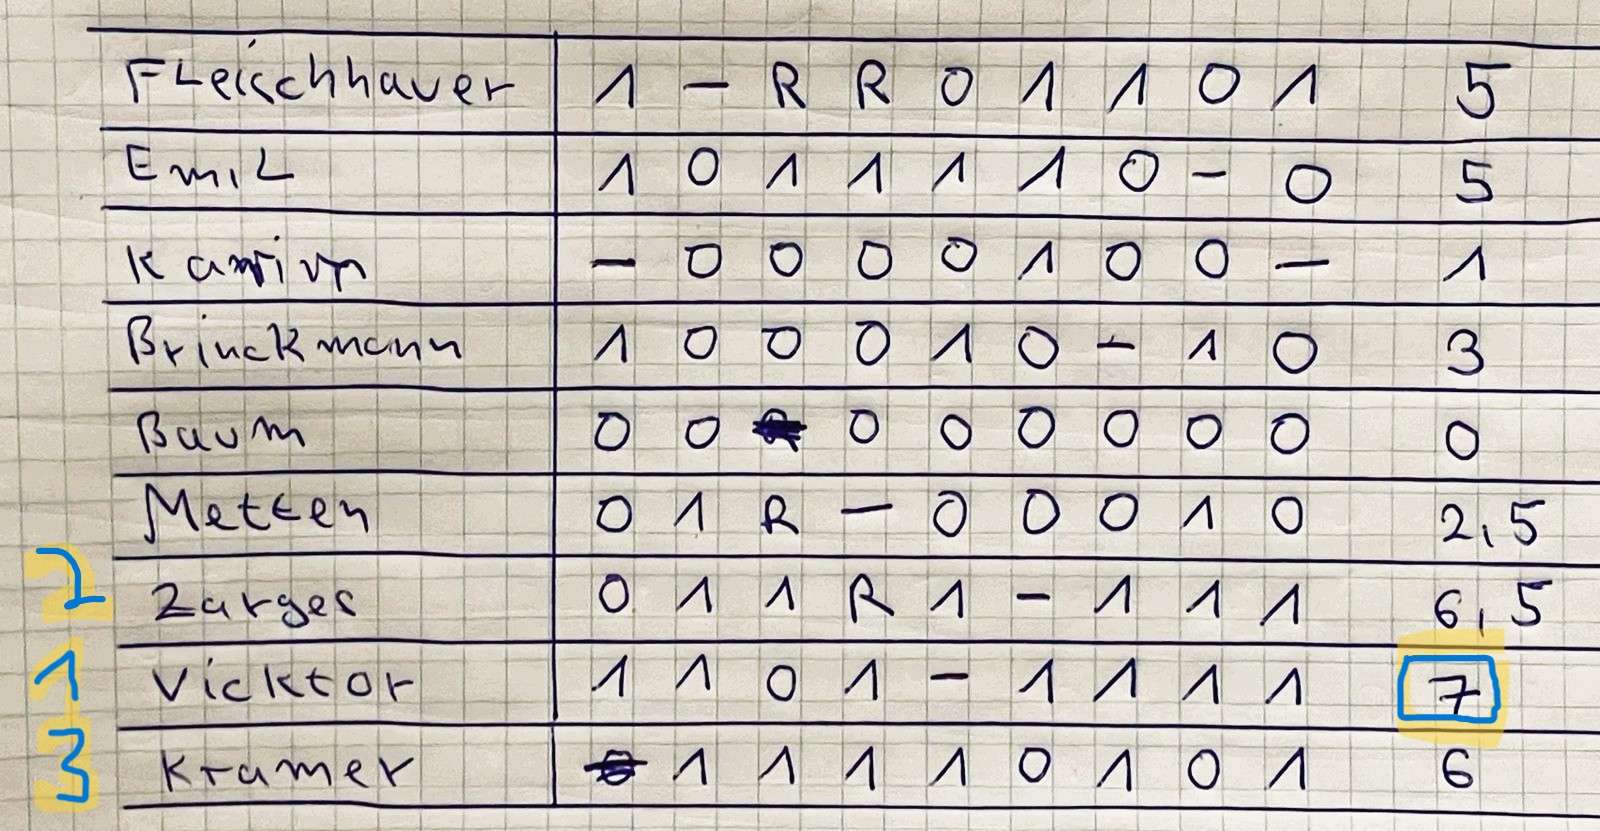 Fleischhauer 1 – R R 0 1 1 0 1 5
Emil 1 0 1 1 1 1 0 – 0 5
– 0 0 0 0 1 0 0 – 1
Brinckmann 1 0 0 0 1 0 – 1 0 3
Baum 0 0 0 0 0 0 0 0 0
Metten 0 1 R – 0 0 0 1 0 2,5
2 Zarges 0 1 1 R 1 – 1 1 1 6,5
1 Vicktor 1 1 0 1 – 1 1 1 1 7
3 Kramer 1 1 1 1 0 1 0 1 6